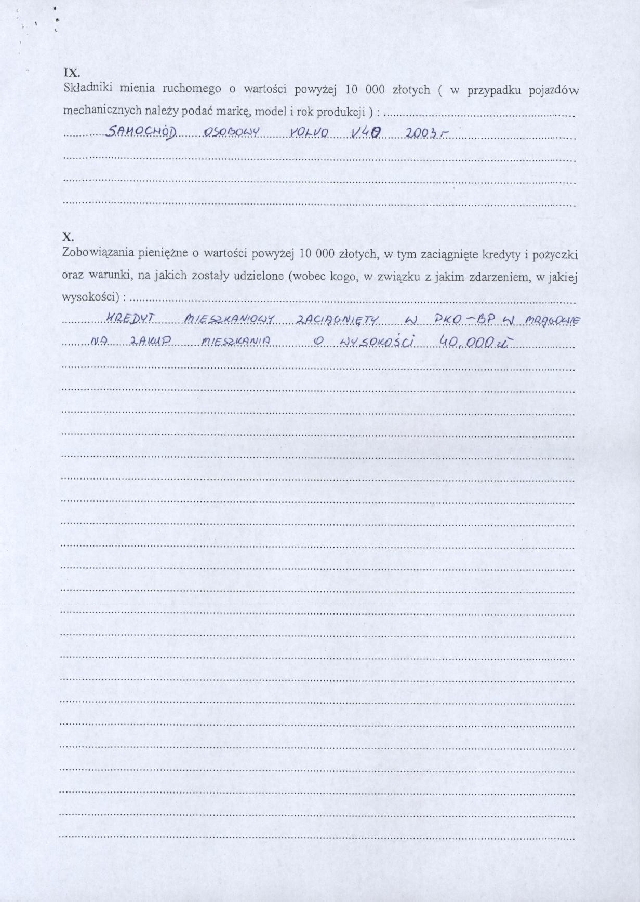 IX.
Składniki mienia ruchomego o wartości powyżej 10 000 złotych ( w przypadku pojazdów
mechanicznych należy podać markę, model i rok produkcji ) :
SAMOCHÓD OSOBOWY VOLVO V40 2003 r
X.
Zobowiązania pieniężne o wartości powyżej 10 000 złotych, w tym zaciągnięte kredyty i pożyczki
oraz warunki, na jakich zostały udzielone (wobec kogo, w związku z jakim zdarzeniem, w jakiej
wysokości) :
KREDYT MIESZKANIOWY ZACIĄGNIĘTY W PKO-BP W MRĄGOWIE
NA ZAKUP MIESZKANIA O WYSOKOŚCI 40.000 zł